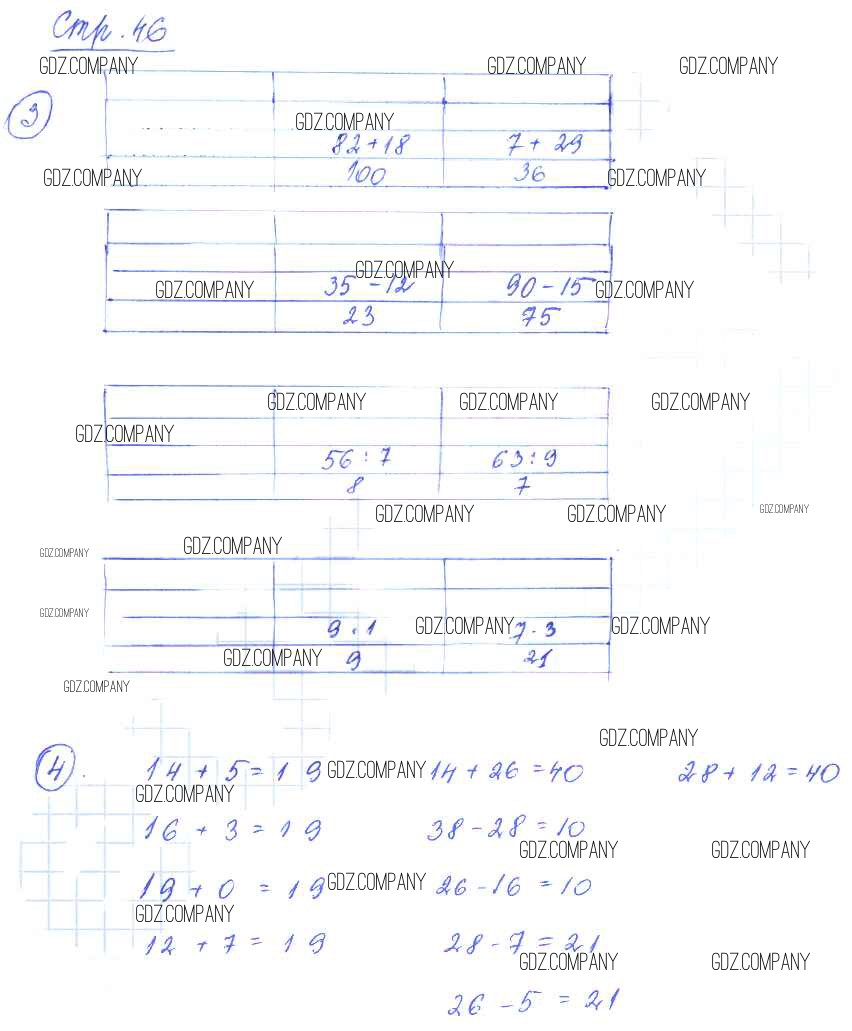 Стр. 46
GDZ.COMPANY GDZ.COMPANY GDZ.COMPANY
3
GDZ.COMPANY
82+18 7+29
GDZ.COMPANY 100 36 GDZ.COMPANY
GDZ.COMPANY
GDZ.COMPANY 35-12 90-15 GDZ.COMPANY
23 75
GDZ.COMPANY GDZ.COMPANY GDZ.COMPANY
GDZ.COMPANY
56:7 63:9
8 7
GDZ.COMPANY GDZ.COMPANY GDZ.COMPANY
GDZ.COMPANY GDZ.COMPANY
GDZ.COMPANY
9·1 GDZ.COMPANY 7·3 GDZ.COMPANY
GDZ.COMPANY 9 21
GDZ.COMPANY
GDZ.COMPANY
4. 14+5=19 GDZ.COMPANY 14+26=40 28+12=40
GDZ.COMPANY
16+3=19 38-28=10
GDZ.COMPANY GDZ.COMPANY
19+0=19 GDZ.COMPANY 26-16=10
GDZ.COMPANY
12+7=19 28-7=21
GDZ.COMPANY GDZ.COMPANY
26-5=21